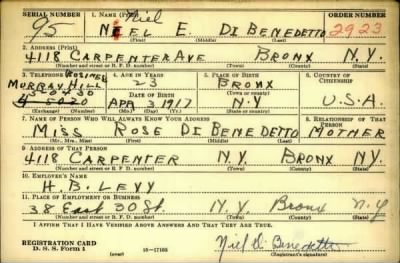 SERIAL NUMBER 1. NAME (Print) ORDER NUMBER
95 Niel
NEEL E. DI BENEDETTO 2923
(First) (Middle) (Last)
2. ADDRESS (Print)
4118 CARPENTER AVE BRONX N.Y.
(Number and street or R. F. D. number) (Town) (County) (State)
3. TELEPHONE 4. AGE IN YEARS 5. PLACE OF BIRTH 6. COUNTRY OF CITIZENSHIP
BUSINESS
MURRAY HILL 23 BRONX
5-0430 DATE OF BIRTH (Town or county)
5020 APR 3 1917 N.Y U.S.A.
(Exchange) (Number) (Mo.) (Day) (Yr.) (State or country)
7. NAME OF PERSON WHO WILL ALWAYS KNOW YOUR ADDRESS 8. RELATIONSHIP OF THAT PERSON
MISS ROSE DI BENEDETTO MOTHER
(Mr., Mrs., Miss) (First) (Middle) (Last)
9. ADDRESS OF THAT PERSON
4118 CARPENTER N.Y. BRONX N.Y.
(Number and street or R. F. D. number) (Town) (County) (State)
10. EMPLOYER'S NAME
H. B. LEVY
11. PLACE OF EMPLOYMENT OR BUSINESS
38 East 30 St. N.Y. Bronx N.Y
(Number and street or R. F. D. number) (Town) (County) (State)
I AFFIRM THAT I HAVE VERIFIED ABOVE ANSWERS AND THAT THEY ARE TRUE.
REGISTRATION CARD
D. S. S. Form 1 16-17105 Niel Di Benedetto
(Registrant's signature)